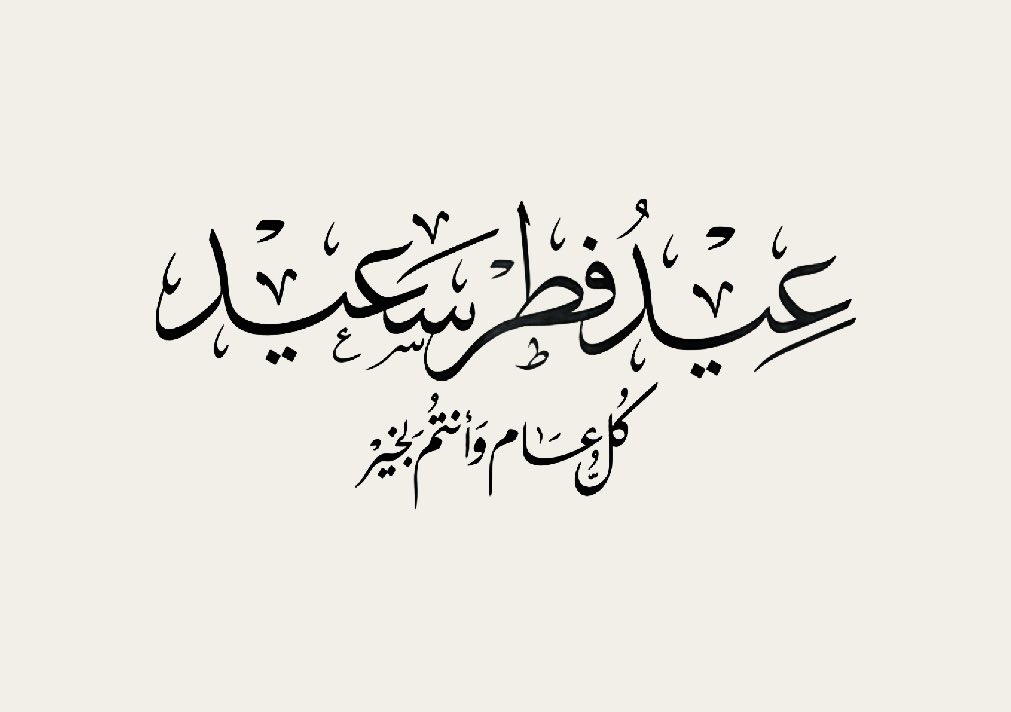 عِيدُ فطر سَعيد
كُلُّ عَام وَأنتُم بَخيْر